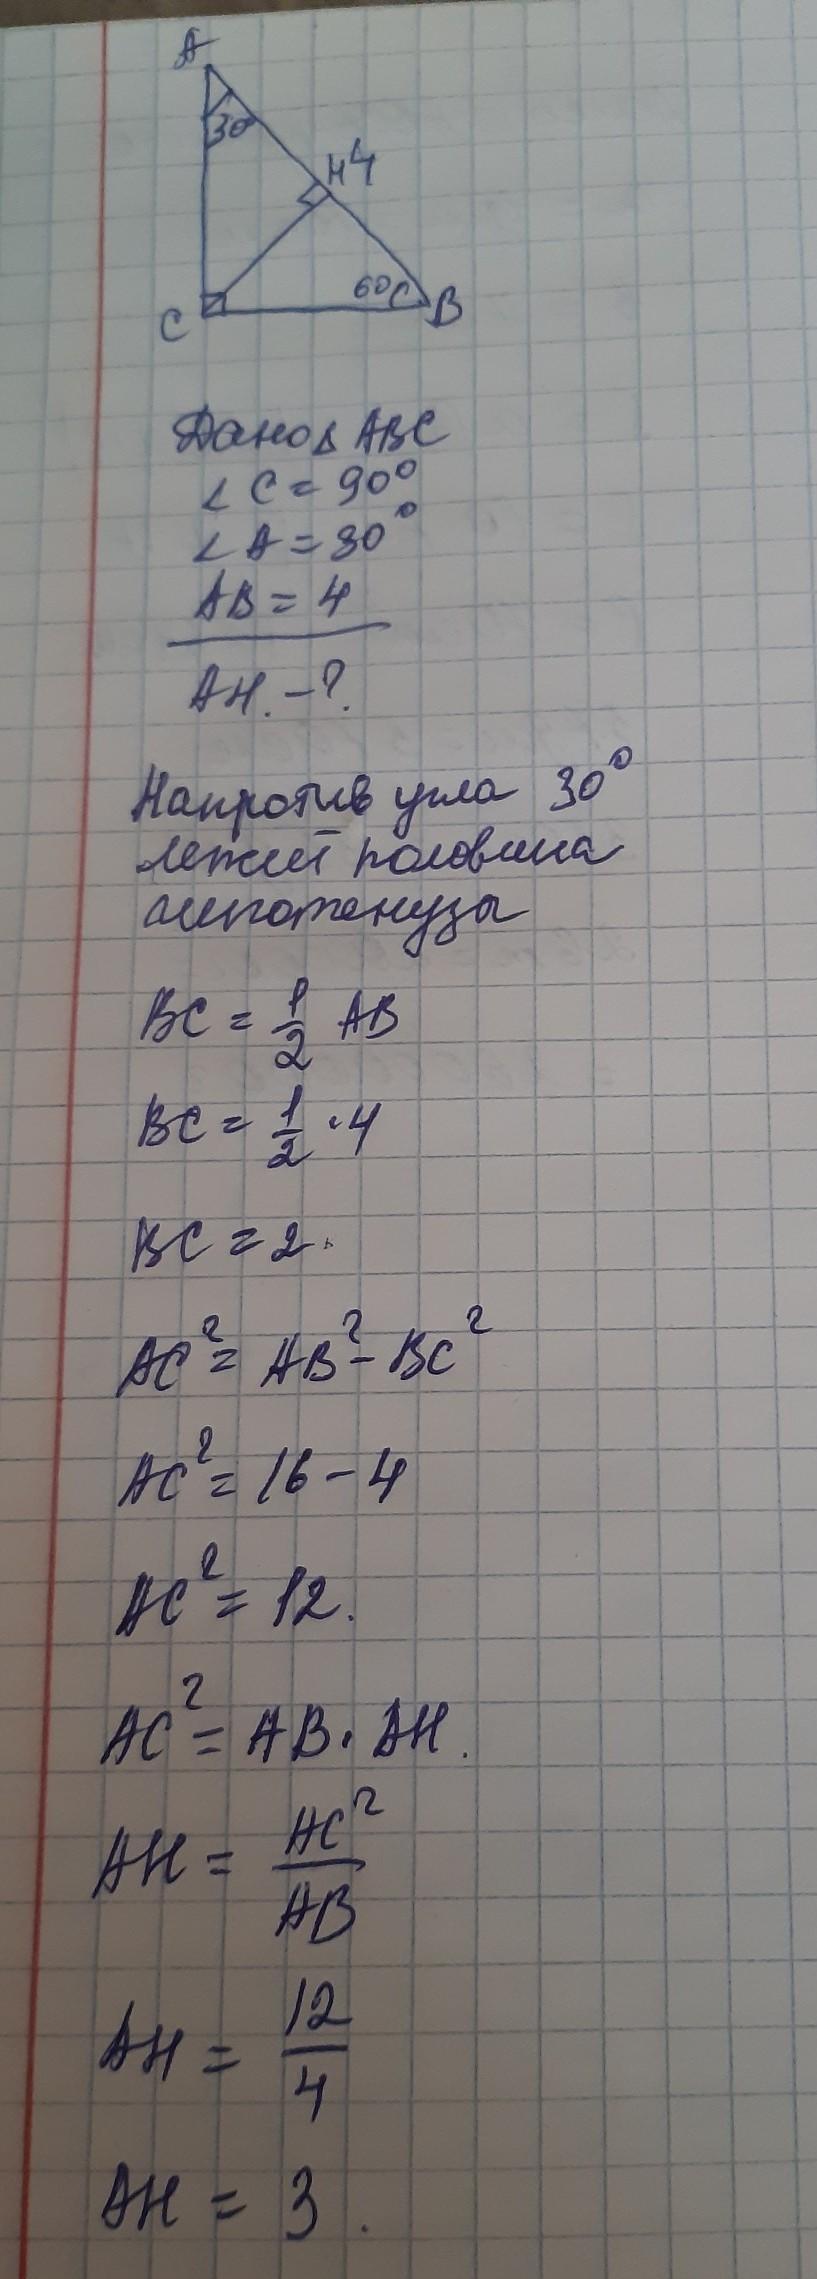 A
30°
H 4
60
C
B
Дано Δ ABC
∠ C = 90°
∠ A = 30°
AB = 4
AH. - ?.
Напротив угла 30°
лежит половина
гипотенузы
BC = 1/2 AB
BC = 1/2 · 4
BC = 2.
AC² = AB² - BC²
AC² = 16 - 4
AC² = 12.
AC² = AB · AH.
AH = AC²/AB
AH = 12/4
AH = 3.